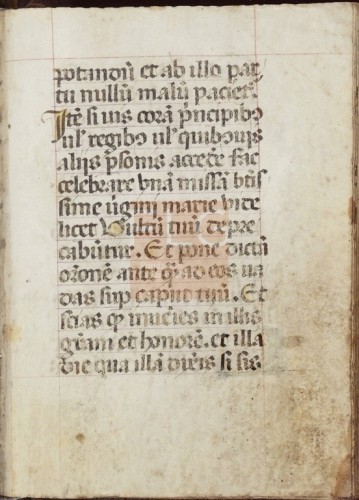 potandũ et ab illo par
tu nullũ malũ paciet̃.
Itẽ si uis corã p̃ncipibo
ul' regibo ul' quibouis
aliis p̃sonis acceðe fac
celebrare unã missã btĩs
sime ũgini marie vide
licet Vultũ tuũ depre
cabũtur. Et pone dictũ
orõnem ante q̃ ad eos ua
das sup̃ caput tuũ. Et
scias q̃ inuẽies in illis
gr̃am et honorẽ. et illa
die qua illã dix̃is si sis